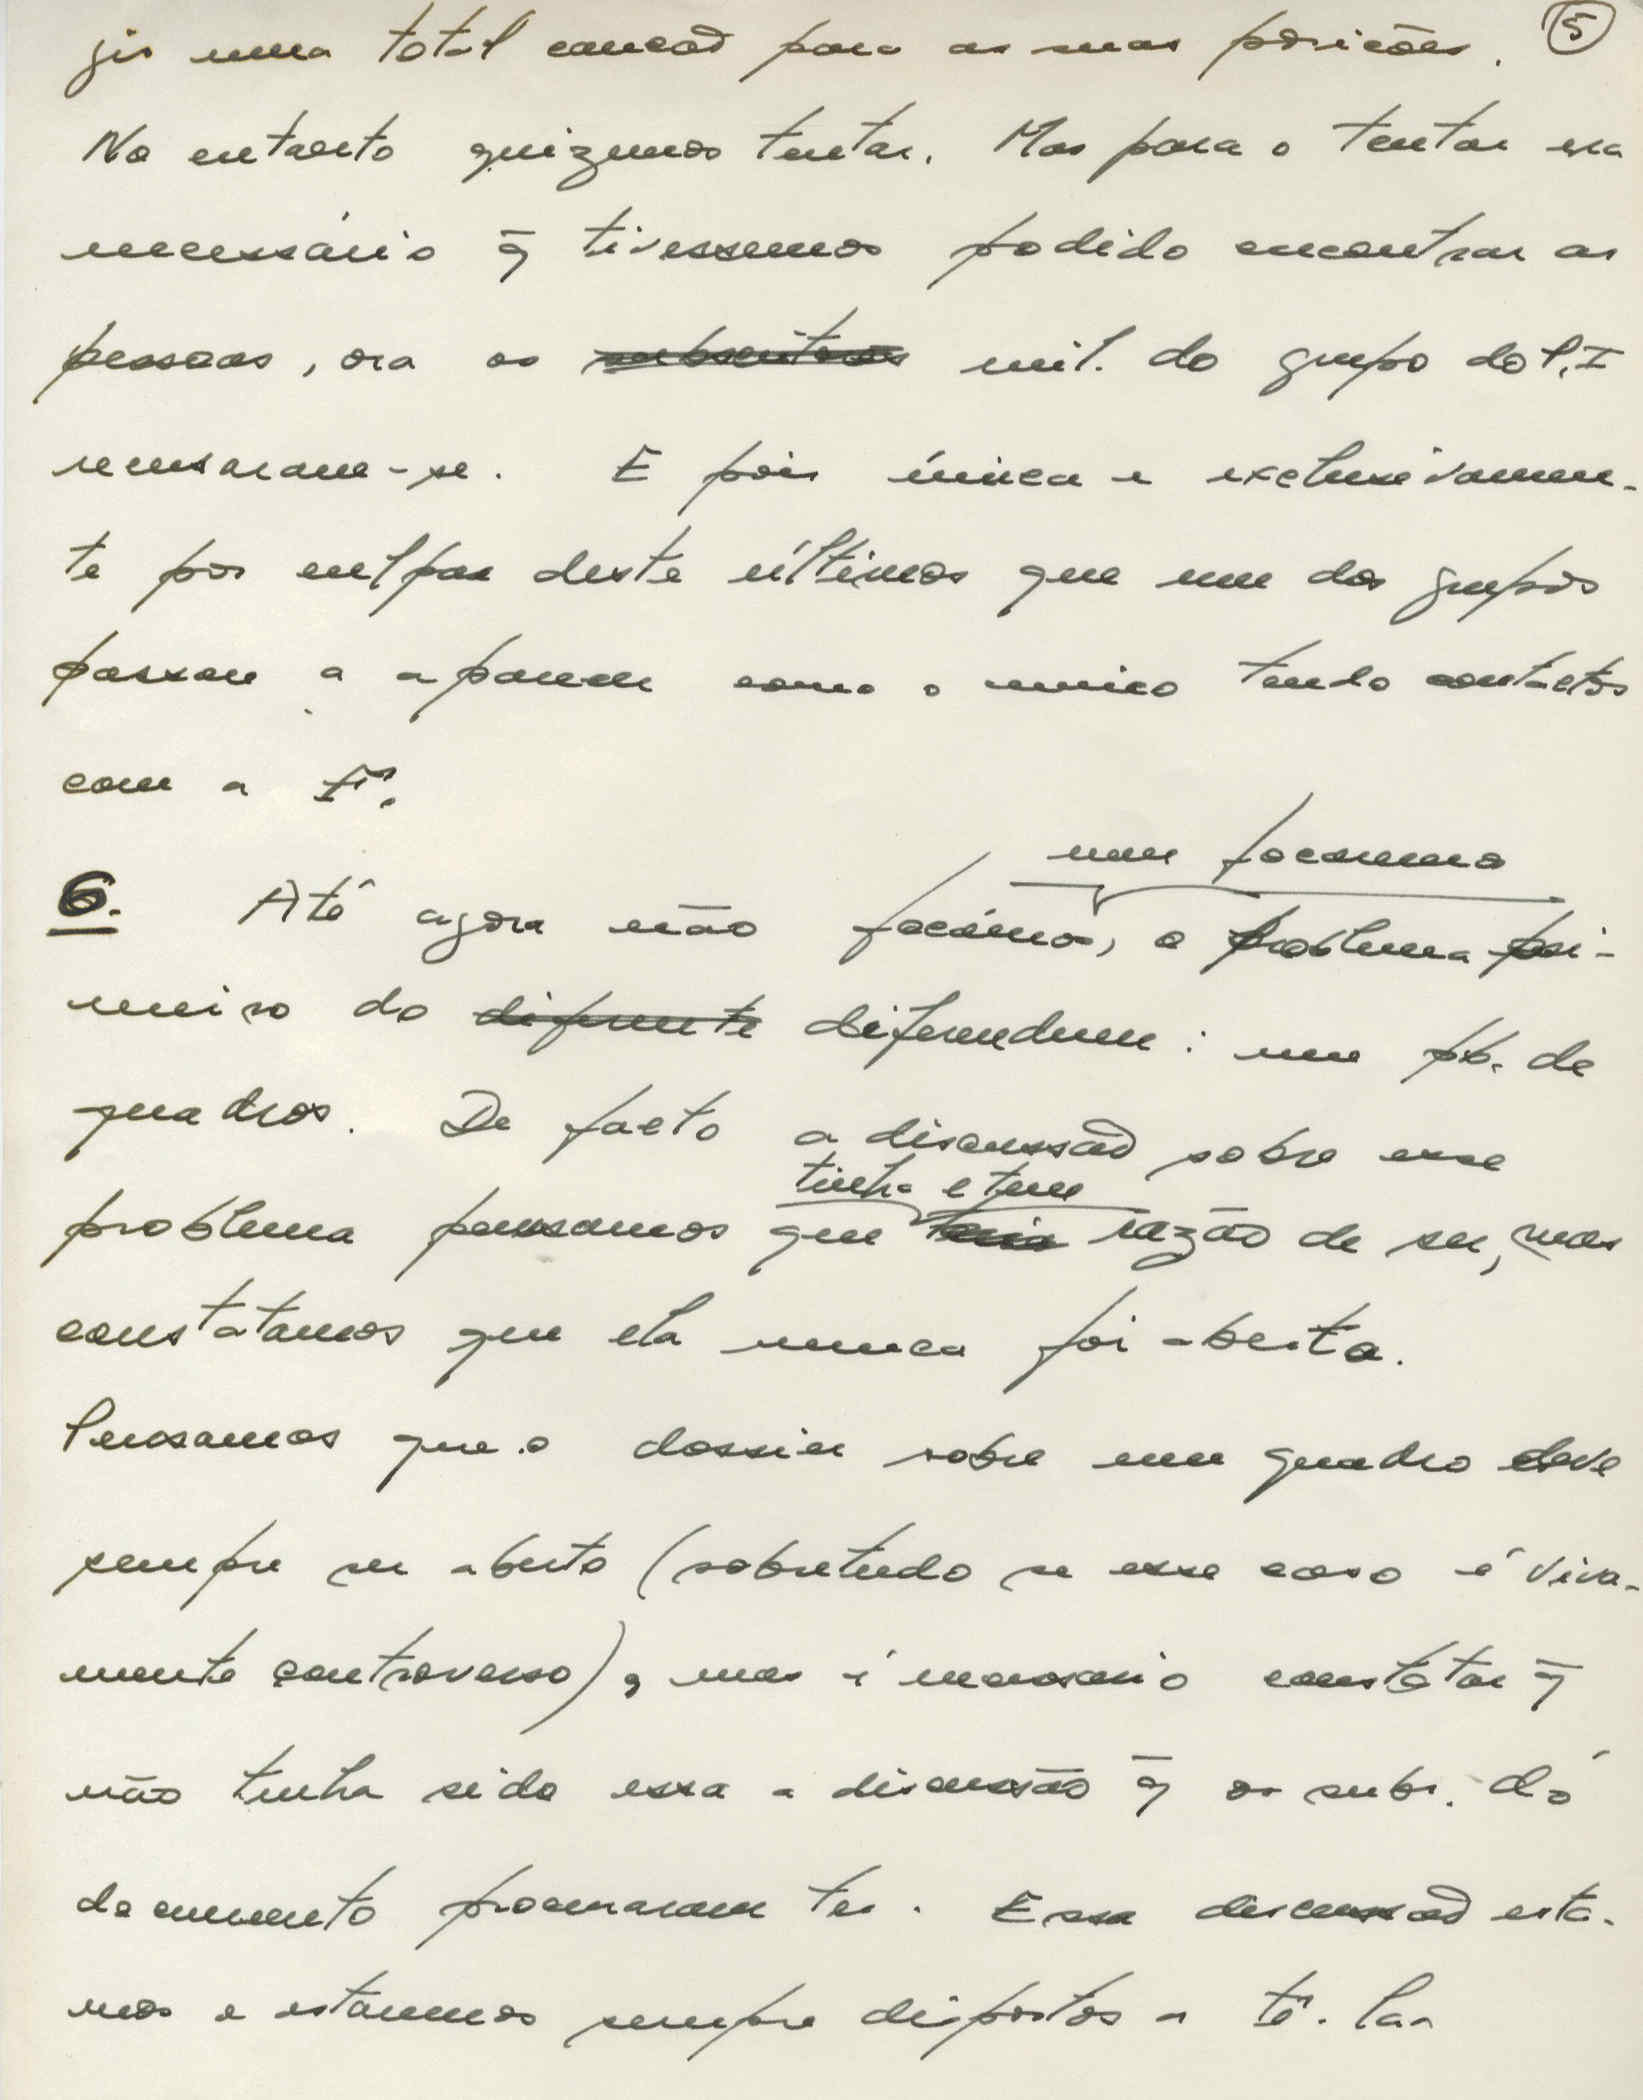 gir uma total caução para as suas posições. 5
No entanto quizemos tentar. Mas para o tentar era
necessário q̄ tivessemos podido encontrar as
pessoas, ora os subscritores mil. do grupo do P.I
recusaram-se. E pois única e exclusivamen-
te por culpa deste últimos que um dos grupos
passou a aparecer como o unico tendo contactos
com a Iª.
nem focaremos
6. Até agora não focámos, o problema pri-
meiro do diferente diferendum: um pb. de
quadros. De facto a discussão sobre esse
tinha e tem
problema pensamos que razão de ser, mas
constatamos que ela nunca foi aberta.
Pensamos que o dossier sobre um quadro deve
sempre ser aberto (sobretudo se esse caso é viva-
mente controverso), mas é necessario constatar q̄
não tenha sido essa a discussão q̄ os subs. do
documento procuraram ter. Essa discussão está-
mos e estaremos sempre dispostos a tê-la